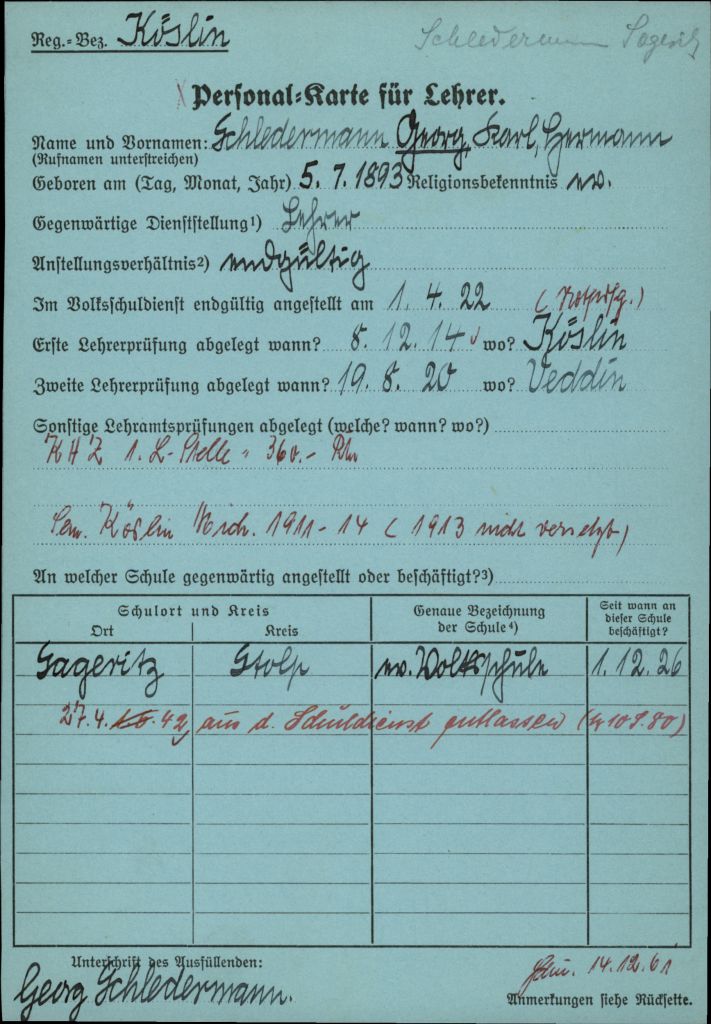 Reg.=Bez. Köslin
Schledermann Sageritz
X Personal=Karte für Lehrer.
Name und Vornamen: Schledermann Georg, Karl, Hermann
(Rufnamen unterstreichen)
Geboren am (Tag, Monat, Jahr) 5. 7. 1893 Religionsbekenntnis ev.
Gegenwärtige Dienststellung¹) Lehrer
Anstellungsverhältnis²) endgültig
Im Volksschuldienst endgültig angestellt am 1. 4. 22
Erste Lehrerprüfung abgelegt wann? 8. 12. 14 wo? Köslin
Zweite Lehrerprüfung abgelegt wann? 19. 8. 20 wo? Veddin
Sonstige Lehramtsprüfungen abgelegt (welche? wann? wo?)
K H Z 1. L-Stelle = 360.- RM
Sem. Köslin Mich. 1911-14 (1913 nicht versetzt)
An welcher Schule gegenwärtig angestellt oder beschäftigt?³)
Schulort und Kreis
Ort
Kreis
Genaue Bezeichnung der Schule⁴)
Seit wann an dieser Schule beschäftigt?
Sageritz Stolp ev. Volksschule 1. 12. 26
27. 4. 42 aus d. Schuldienst entlassen
Unterschrift des Ausfüllenden:
Georg Schledermann.
14. 12. 61
Anmerkungen siehe Rückseite.